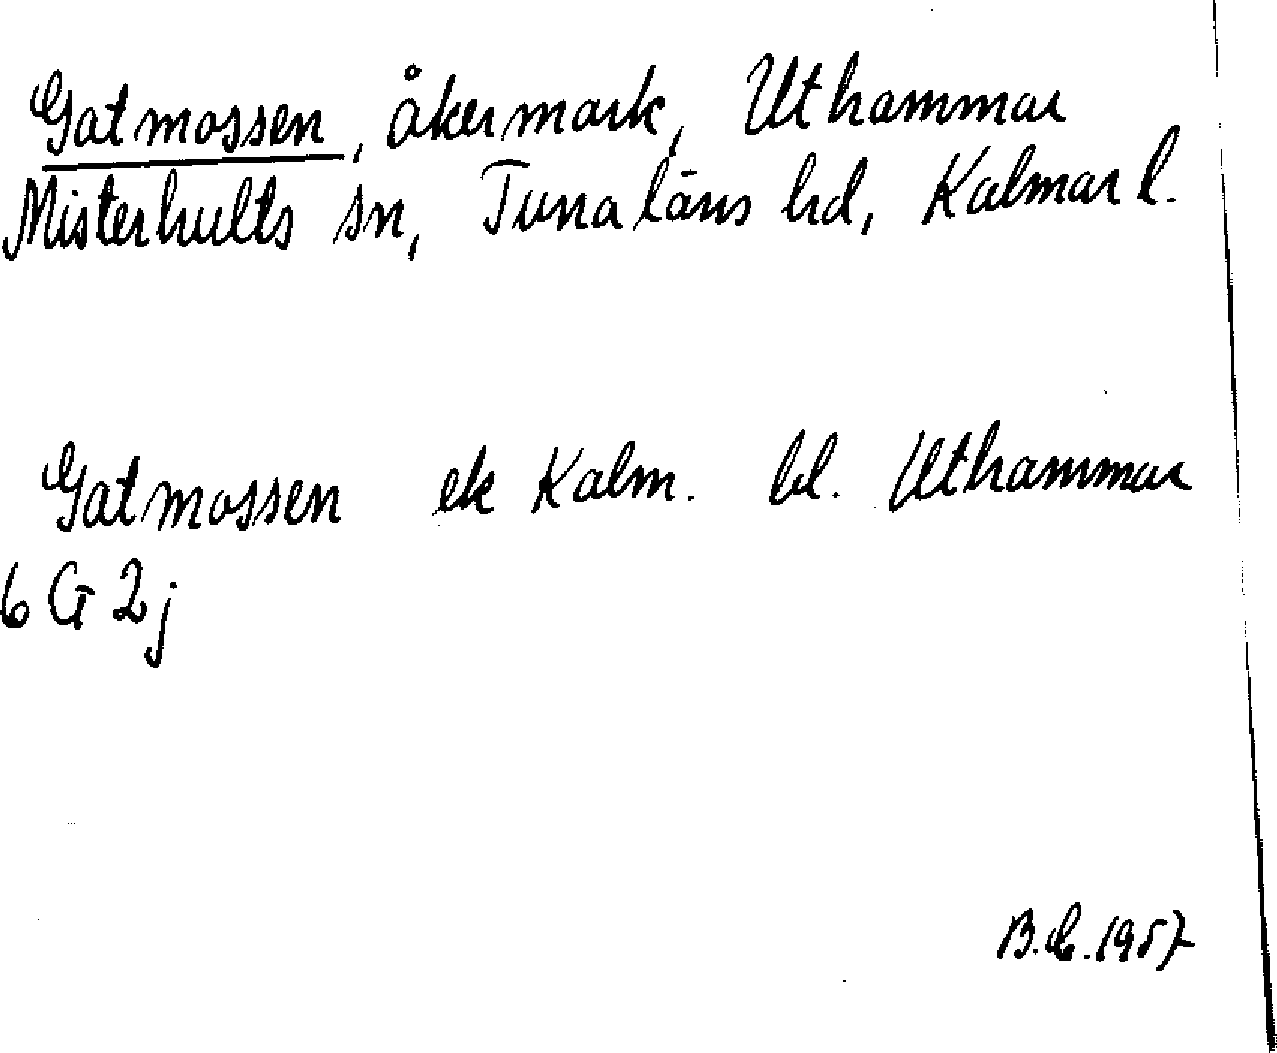 Gatmossen, åkermark, Uthammar
Misterhults sn, Tunaläns hd, Kalmar l.
Gatmossen ek Kalm. bl. Uthammar
6 G 2j
1957